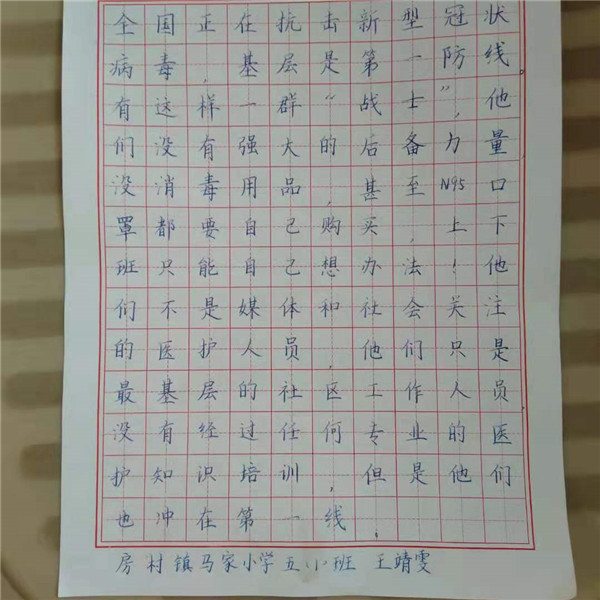 全国正在抗击新型冠状
病毒，基层是第一防线。
有这样一群“战士”，他
们没有强大的后备力量
没消毒用品，甚至N95口
罩都要自己购买，上下
班只能自己想办法！他
们不是媒体和社会关注
的医护人员，他们只是
最基层的社区工作人员，
没有经过任何专业的医
护知识培训，但是他们
也冲在第一线，
房村镇马家小学五小班 王靖雯